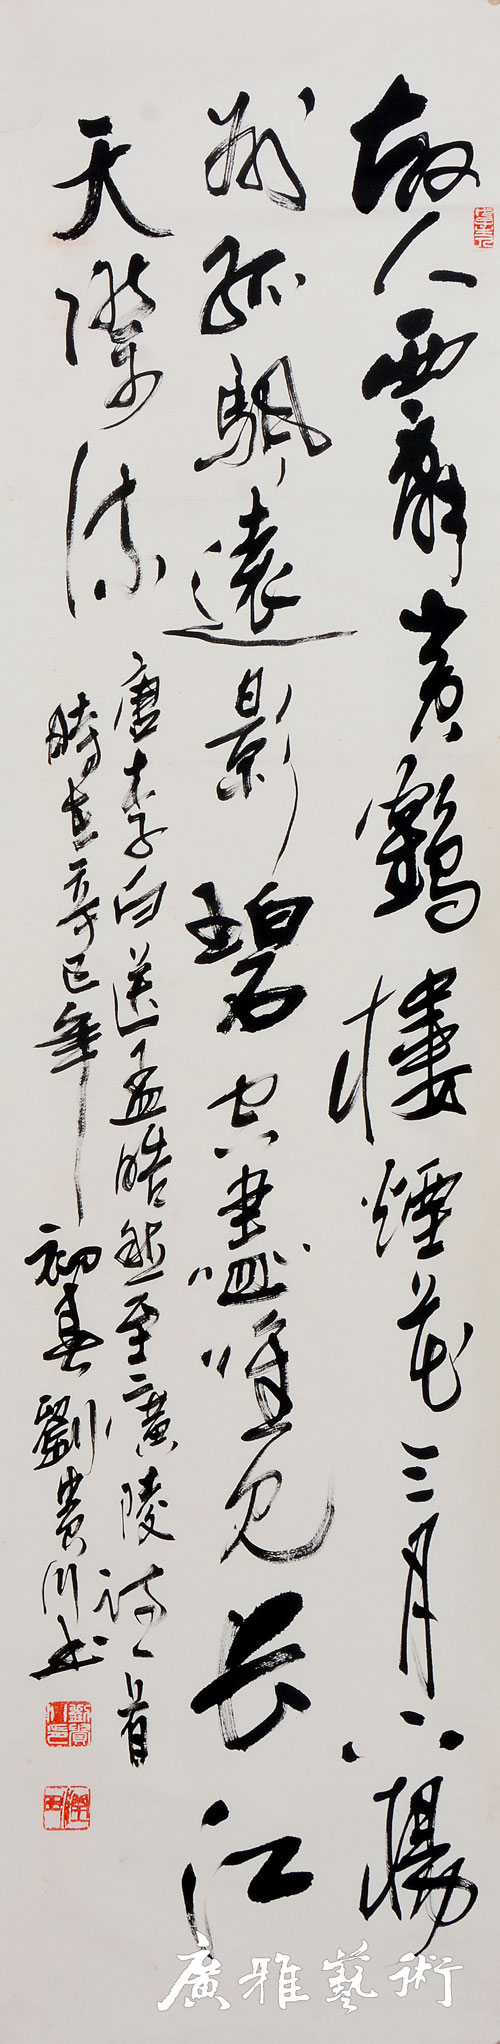 故人西辭黃鶴樓煙花三月下揚
州孤帆遠影碧空盡唯見長江
天際流
唐李白送孟皓然至廣陵詩一首
時在辛巳年初春劉貴川書
廣雅藝術